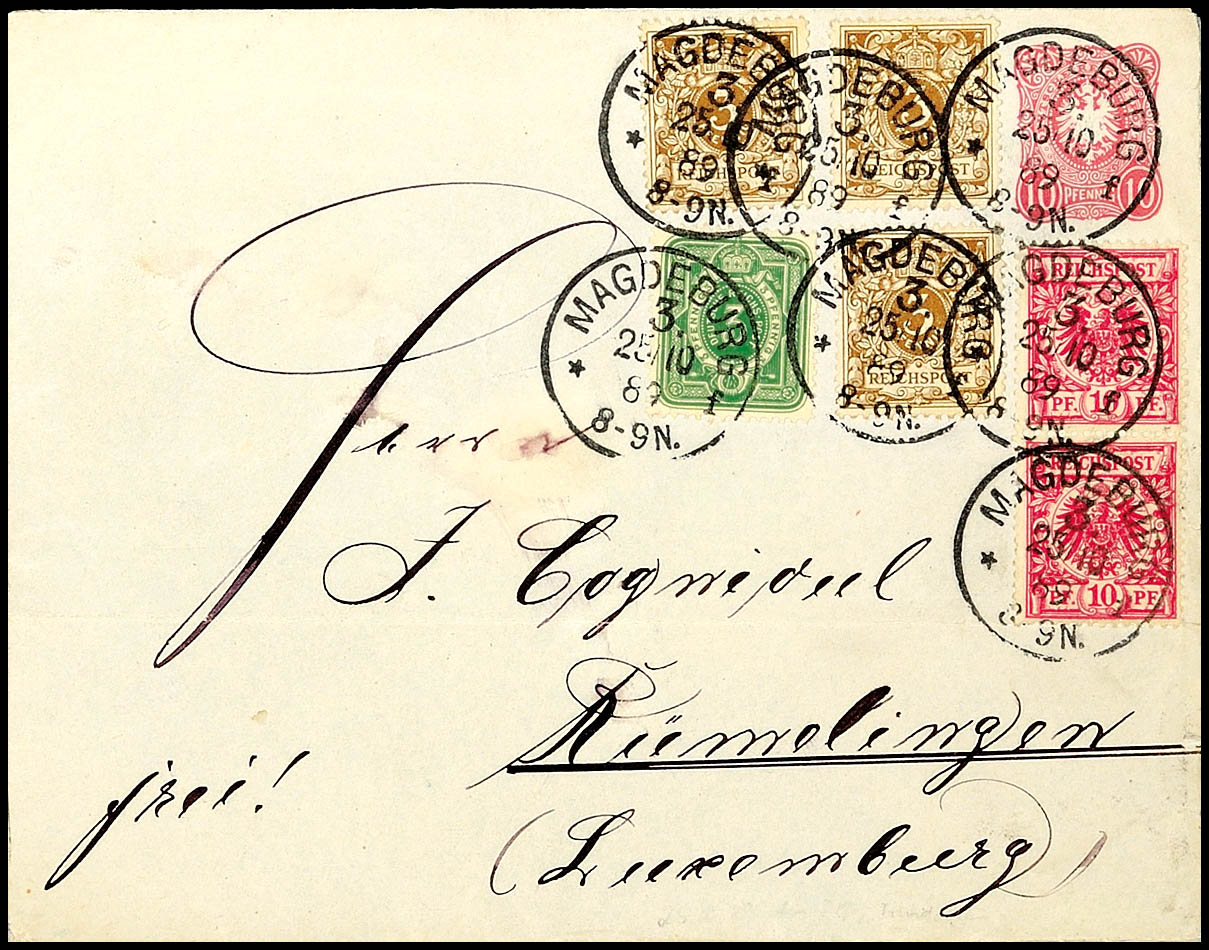 MAGDEBURG
3.
25.10
89
8-9N.
REICHSPOST
MAGDEBURG
3.
25.10
89 f
8-9N.
REICHSPOST
MAGDEBURG
3.
25.10
89 f
8-9N.
10 PFENNIG 10
MAGDEBURG
3.
25.10
89 f
8-9N.
PFENNIG
MAGDEBURG
3
25.10
89
8-9N.
REICHSPOST
MAGDEBURG
3.
25.10
89 f
8-9N.
REICHSPOST
PF. 10 PF.
MAGDEBURG
3.
25.10
89
8-9N.
REICHSPOST
PF. 10 PF.
Herr
J.
Rümelingen
frei!
(Luxemburg)